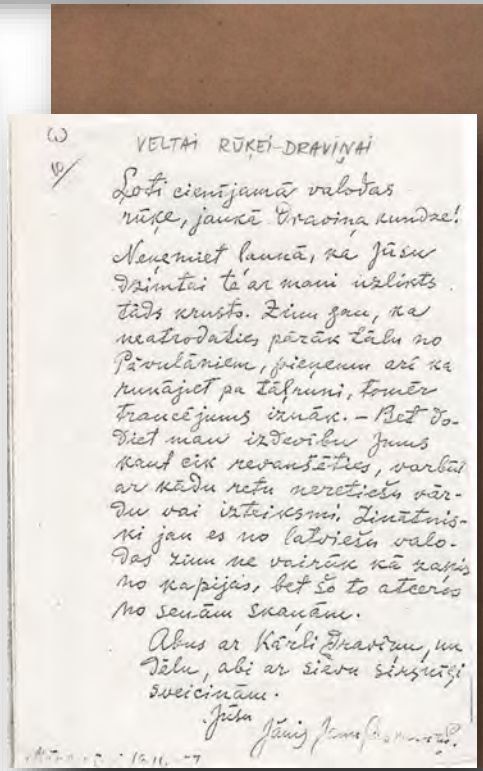 VELTAI RŪĶEI-DRAVIŅAI
Ļoti cienījamā valodas
rūķe, jaukā Draviņa kundze!
Neņemiet ļaunā, ka Jūsu
dzimtai te ar mani uzlikts
tāds krusts. Zinu gan, ka
neatrodaties pārāk tālu no
Pāvulāniem, pieņemu arī ka
runājiet pa tālruni, tomēr
traucējums iznāk. – Bet do-
diet man izdevību Jums
kaut cik revanšēties, varbūt
ar kādu retu neretiešu vār-
du vai izteiksmi. Zinātnis-
ki jau es no latviešu valo-
das zinu ne vairāk kā zaķis
no kapijas, bet šo to atceros
no senām skaņām.
Abus ar Kārli Draviņu, un
dēlu, abi ar sievu sirsnīgi
sveicinām.
Jūsu
Jānis